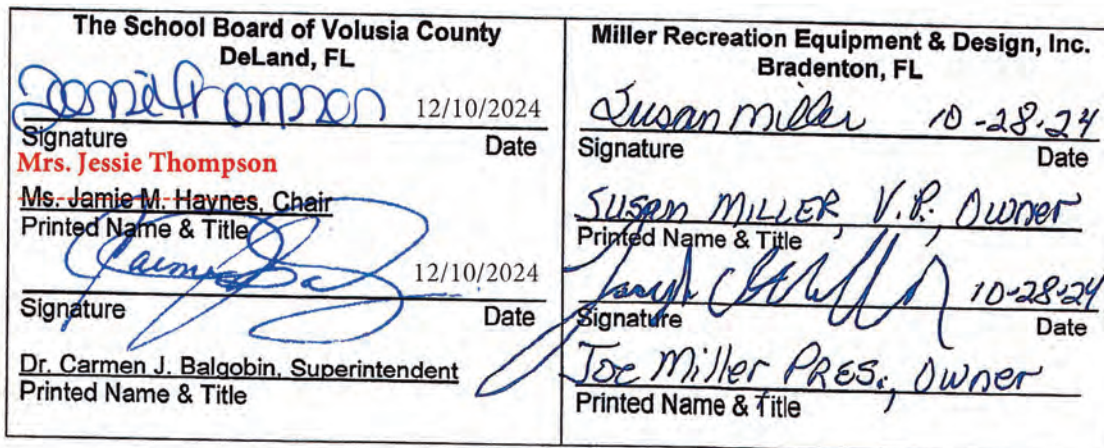 The School Board of Volusia County
DeLand, FL
Jessie Thompson 12/10/2024
Signature Date
Mrs. Jessie Thompson
Ms. Jamie M. Haynes, Chair
Printed Name & Title
12/10/2024
Signature Date
Dr. Carmen J. Balgobin, Superintendent
Printed Name & Title
Miller Recreation Equipment & Design, Inc.
Bradenton, FL
Susan Miller 10-28-24
Signature Date
SUSAN MILLER, V.P., Owner
Printed Name & Title
10-28-24
Signature Date
Joe Miller PRES., Owner
Printed Name & Title